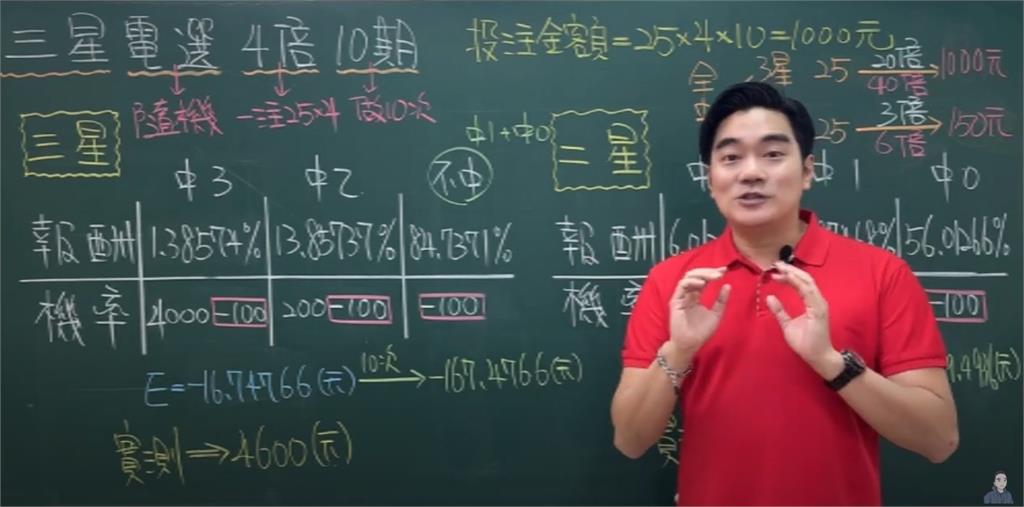 三星 電選 4倍 10期
投注金額=25×4×10=1000元
隨機 一注25×4 做10次
全 3星 25 20倍 40倍 1000元
25 3倍 6倍 150元
中1+中0
三星
二星
中3 中2 不中
中1 中0
報酬 1.38574% 13.85737% 84.7371%
報酬 6.01 68% 56.01266%
機率 4000-100 200-100 -100
機率 -100
E=-16.74766(元) 10次 -167.4766(元)
9.4936(元)
實測⇒4600(元)